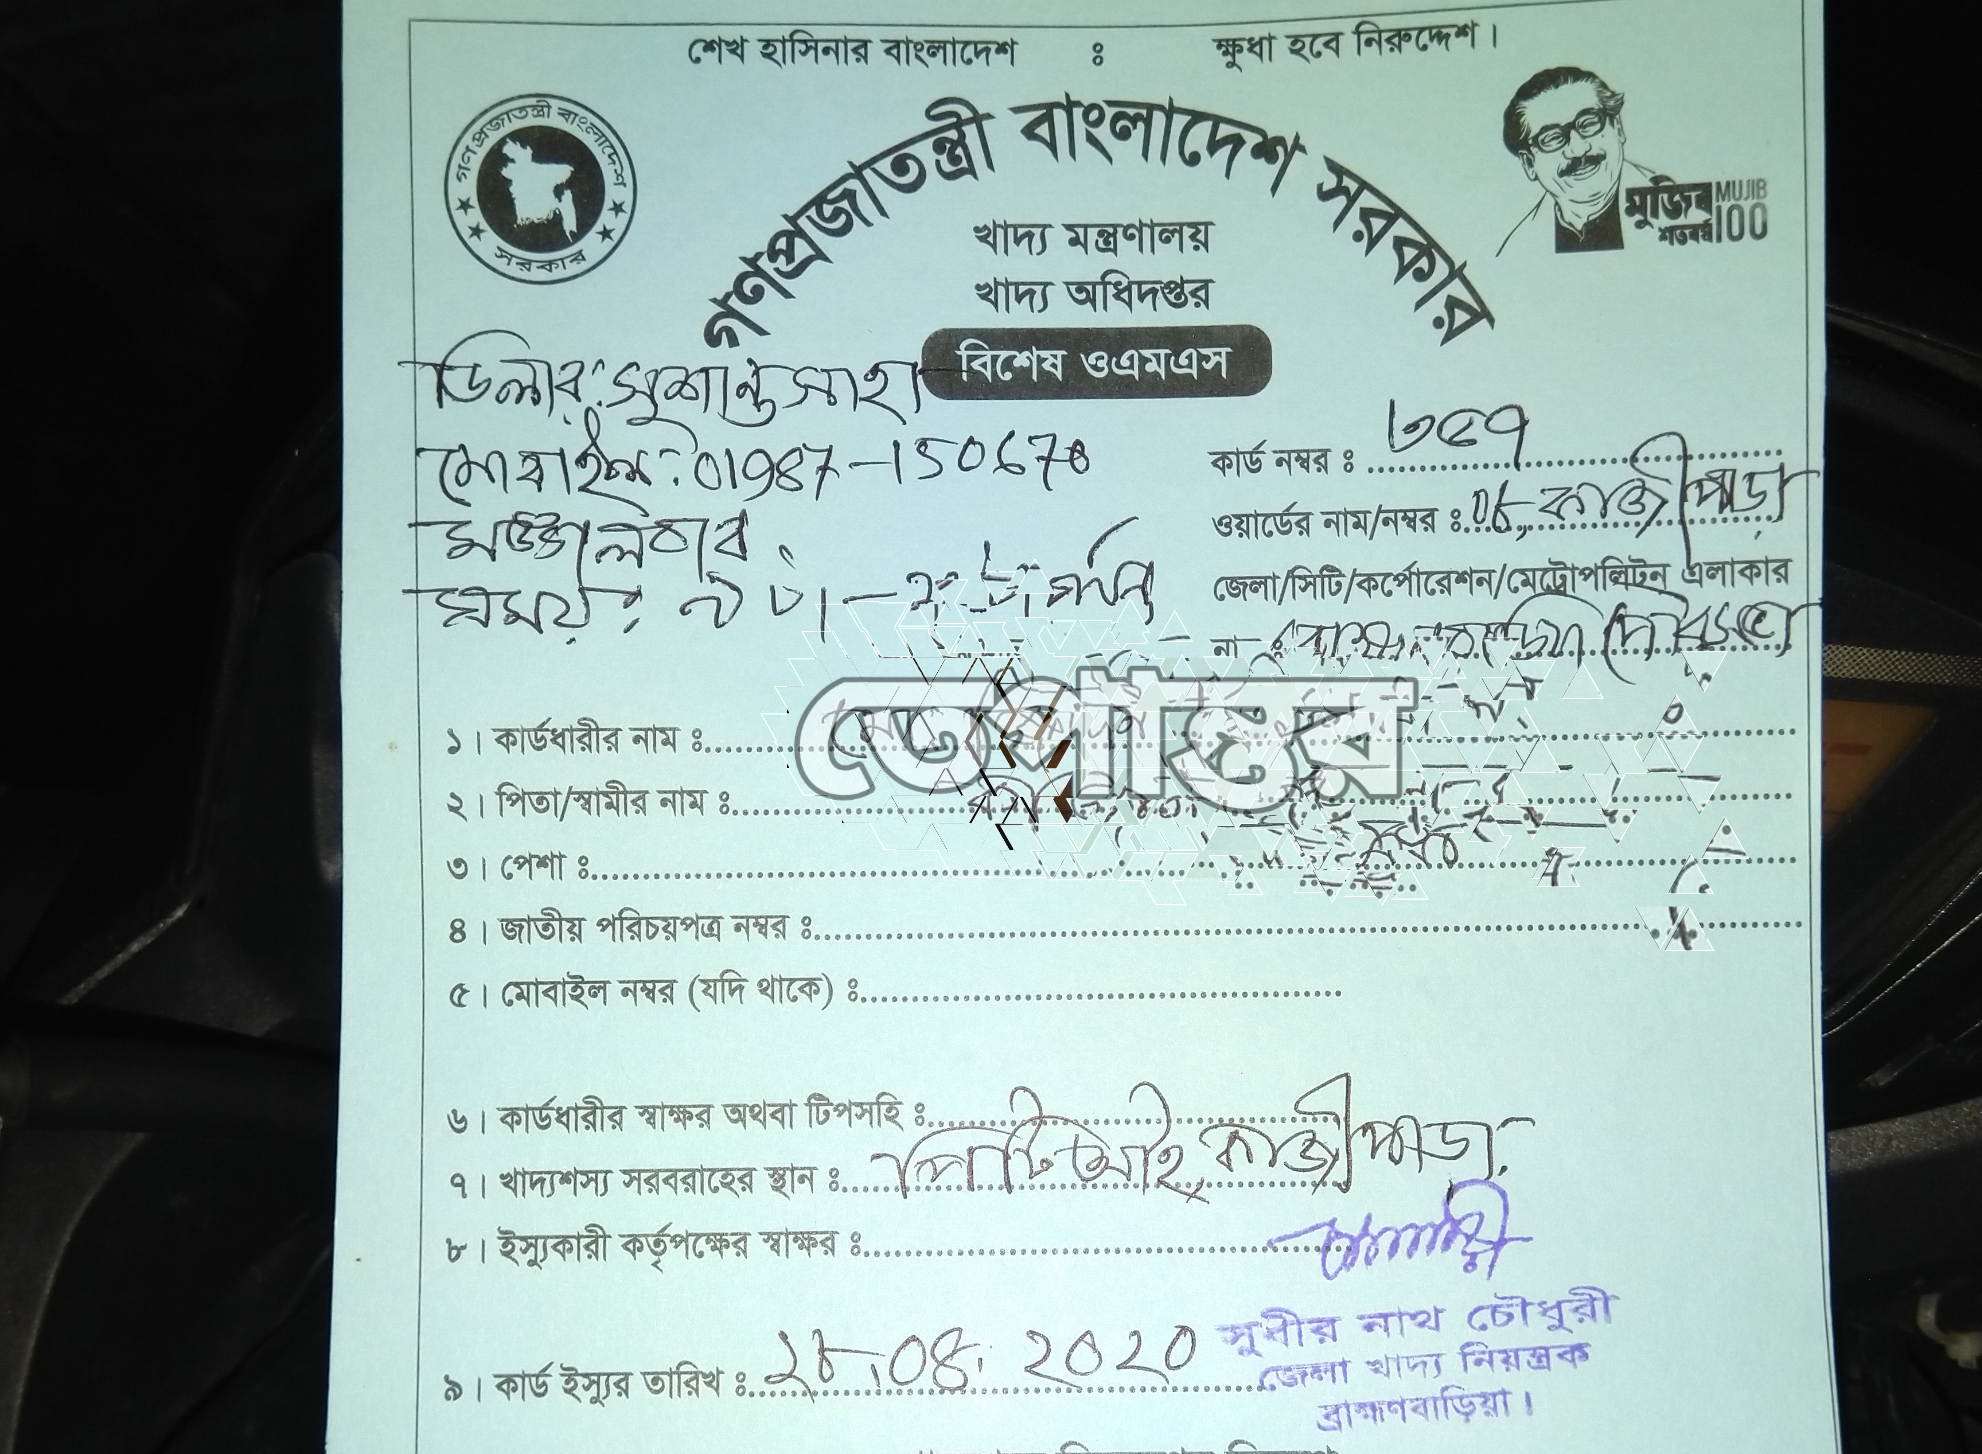 শেখ হাসিনার বাংলাদেশ ঃ ক্ষুধা হবে নিরুদ্দেশ।
গণপ্রজাতন্ত্রী বাংলাদেশ
সরকার
গণপ্রজাতন্ত্রী বাংলাদেশ সরকার
মুজিব MUJIB
শতবর্ষ 100
খাদ্য মন্ত্রণালয়
খাদ্য অধিদপ্তর
বিশেষ ওএমএস
ডিলার: সুশান্ত সাহা
মোবাইল: 01987-150670
মঙ্গলবার
সময়:
কার্ড নম্বর ঃ ৩৫৭
ওয়ার্ডের নাম/নম্বর ঃ ০৮, কাজীপাড়া
জেলা/সিটি/কর্পোরেশন/মেট্রোপলিটন এলাকার
না পৌরসভা
তেপান্তর
১। কার্ডধারীর নাম ঃ
২। পিতা/স্বামীর নাম ঃ
৩। পেশা ঃ
৪। জাতীয় পরিচয়পত্র নম্বর ঃ
৫। মোবাইল নম্বর (যদি থাকে) ঃ
৬। কার্ডধারীর স্বাক্ষর অথবা টিপসহি ঃ
৭। খাদ্যশস্য সরবরাহের স্থান ঃ পিটিআই, কাজীপাড়া
৮। ইস্যুকারী কর্তৃপক্ষের স্বাক্ষর ঃ
৯। কার্ড ইস্যুর তারিখ ঃ ২৮.০৪.২০২০
সুধীর নাথ চৌধুরী
জেলা খাদ্য নিয়ন্ত্রক
ব্রাহ্মণবাড়িয়া।